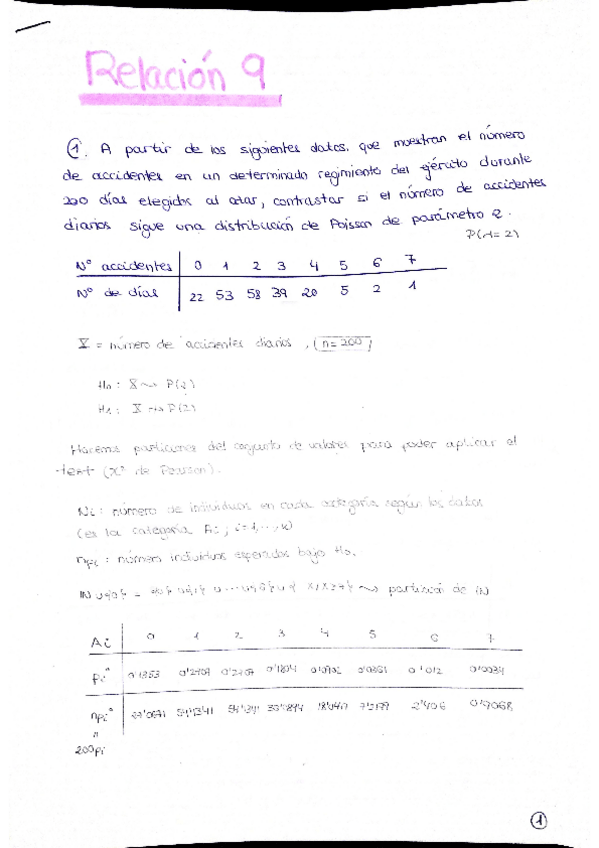 Relación 9
1. A partir de los siguientes datos, que muestran el número
de accidentes en un determinado regimiento del ejército durante
200 días elegidos al azar, contrastar si el número de accidentes
diarios sigue una distribución de Poisson de parámetro 2.
P(λ=2)
Nº accidentes 0 1 2 3 4 5 6 7
Nº de días 22 53 58 39 20 5 2 1
X = número de accidentes diarios, n=200
H₀: X ⇝ P(2)
H₁: X P(2)
Hacemos particiones del conjunto de valores para poder aplicar el
test (χ² de Pearson).
Ni: número de individuos en cada categoría según los datos
(es la categoría Ai; i=1,...,k)
npi: número individuos esperados bajo H₀.
partición de IN
Ai 0 1 2 3 4 5 6 7
pi 0'1353 0'2707 0'2707 0'1804 0'0902 0'0361 0'012 0'0034
npi 27'0671 54'1341 54'1341 18'0447 2'406
200pi
1